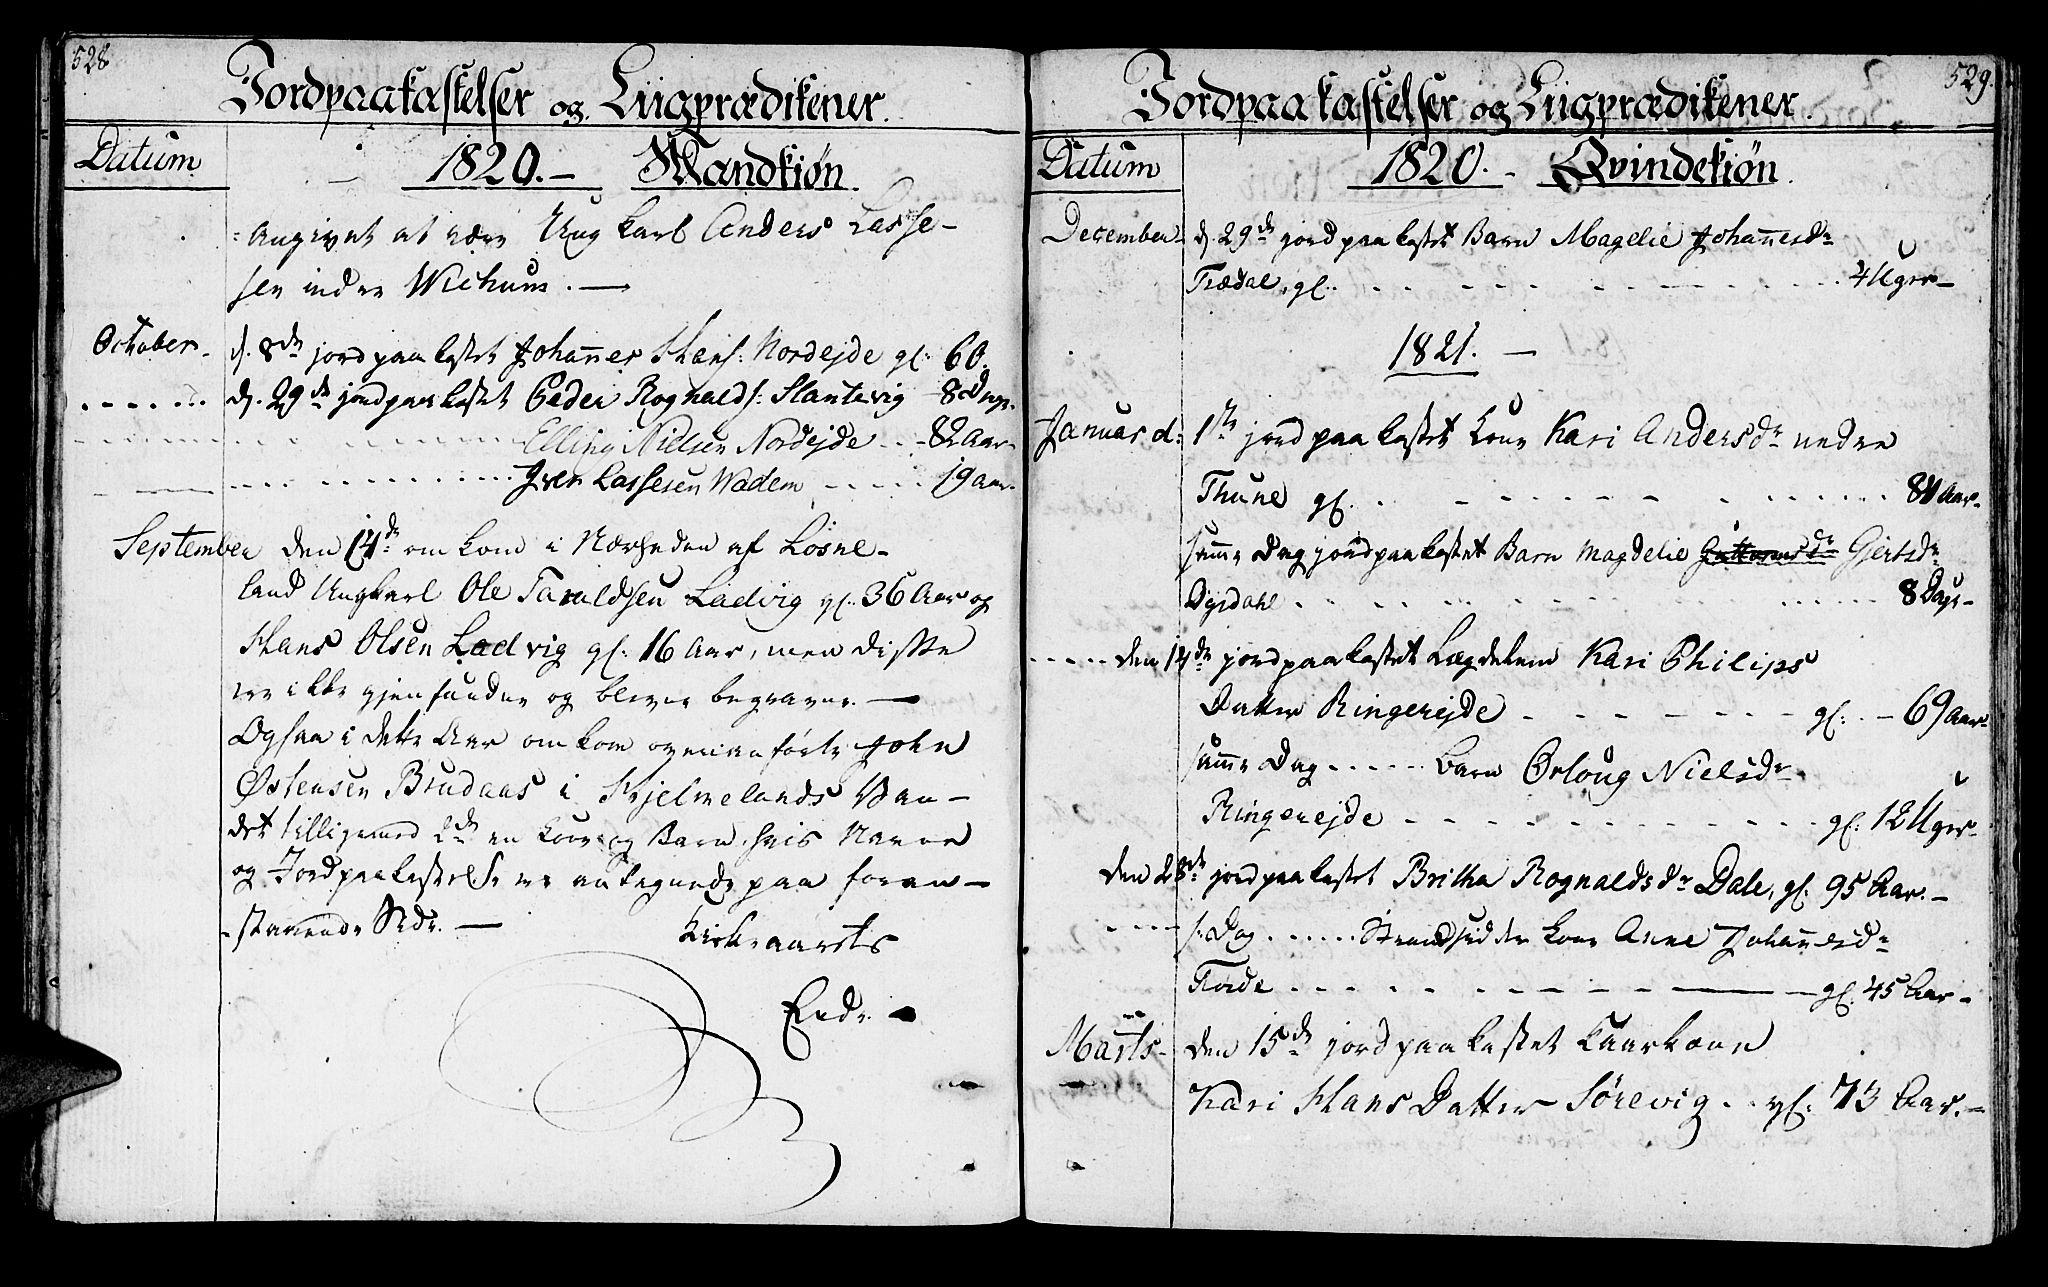 528
Jordpaakastelser og Liigprædikener.
Datum
1820.- Mandkiøn.
angivet at være Ung karl Anders Lasse-
sen indre Wichum. —
October. d. 8de jordpaakastet Johannes Hans: Nordejde gl: 60.
d. 29de jordpaakastet Peder Rognalds: Slantevig 8 Dage.
Elling Nielsen Nordejde 82 Aar
Iver Lassesen Wadem 19 aar
September den 14de omkom i Nærheden af Losne-
land Ungkarl Ole Taraldsen Ladvig gl: 36 Aar og
Hans Olsen Ladvig gl: 16 Aar, men disse
ere ikke gjenfundne og blevne begravne. —
Ogsaa i dette Aar omkom ovenanførte John
Østensen Brudaas i Hjelmelands Van-
det tilligemed 2de en Kone og Barn, hvis Navne
og Jordpaakastelse ere antegnede paa foran-
staaende Side. —
Kirkeaarets
Ende.
529.
Jordpaakastelser og Liigprædikener.
Datum
1820. - Qvindekiøn.
December d. 29de jordpaakastet Barn Magelie Johannesdr
Trædal, gl: 4 Uger
1821. —
Januar d: 1ste jordpaakastet Kone Kari Andersdr nedre
Thune gl. Aar
samme Dag jordpaakastet Barn Magdelie Giertsdr
Dysdahl 8 Dage
den 14de jordpaakastet Lægdelem Kari Philips
Datter Ringerejde gl: 69 Aar
samme Dag Barn Orloug Nielsdr
Ringerejde gl: 12 Uger
den 28de jordpaakastet Britha Rognaldsdr Dale, gl. 95 Aar. -
s: Dag Strandsidder Kone Anne Johannesdr
Förde gl: 45 Aar
Marts den 15de jordpaakastet Kaarkone
Kari Hans Datter Sörevig gl: 73 Aar. -